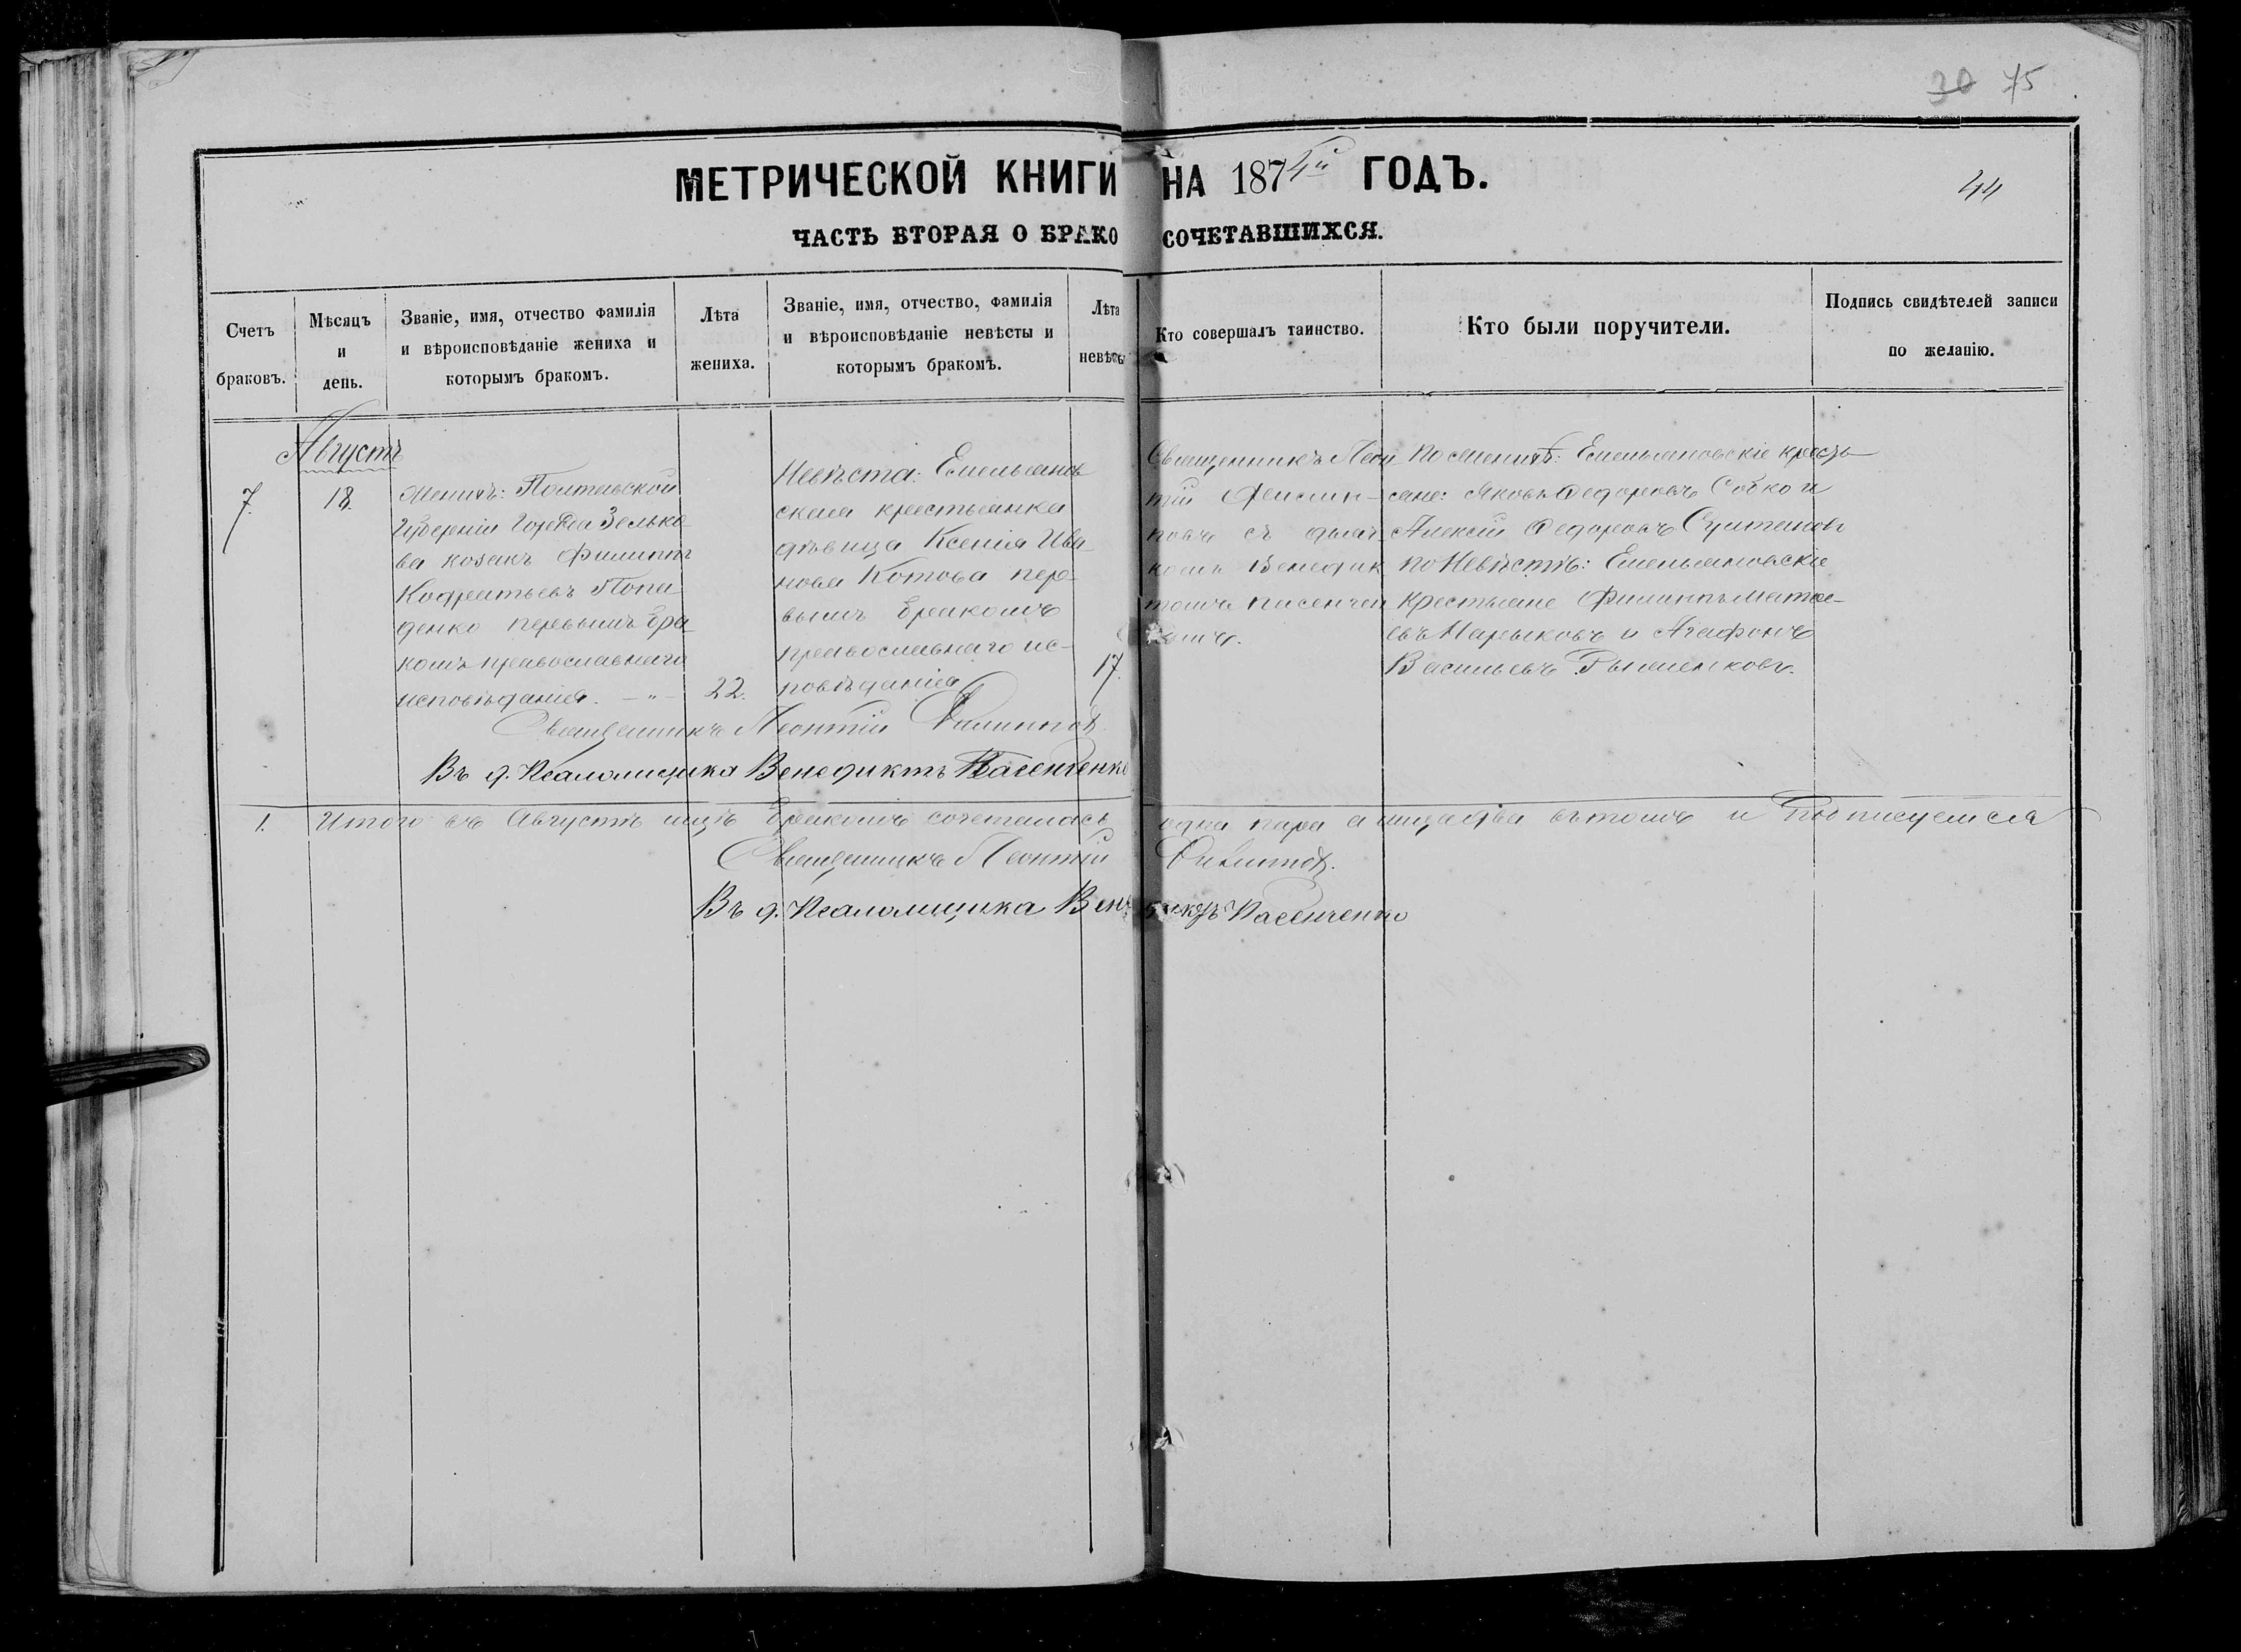 30 75
МЕТРИЧЕСКОЙ КНИГИ НА 1874й ГОДЪ.
44
ЧАСТЬ ВТОРАЯ О БРАКОСОЧЕТАВШИХСЯ.
Счетъ браковъ.
Мѣсяцъ и день.
Званіе, имя, отчество фамилія
и вѣроисповѣданіе жениха и
которымъ бракомъ.
Лѣта
жениха.
Званіе, имя, отчество, фамилія
и вѣроисповѣданіе невѣсты и
которымъ бракомъ.
Лѣта
невѣсты
Кто совершалъ таинство.
Кто были поручители.
Подпись свидѣтелей записи
по желанію.
Августъ
7. 18.
Женихъ: Полтавской
Губерніи Города Зенько
ва козакъ Филиппъ
Кодратьевъ Попа
денко первымъ бра
комъ православнаго
исповѣданія. — „ —
22.
Невѣста: Емельянов
ская крестьянка
дѣвица Ксенія Ива
нова Котова пер-
вымъ бракомъ
православнаго ис-
повѣданія
17.
Священникъ Леон
тій Филип-
повъ съ дьяч
комъ Венедик
томъ Пасенчен
комъ.
По женихѣ: Емельяновскіе кресть
яне: Яковъ Федоровъ Собко и
Алексій Федоровъ
по Невѣстѣ: Емельяновскіе
Крестьяне Филиппъ Матве-
евъ Марыковъ и Агафонъ
Васильевъ
Священникъ Леонтій Филиппов
Въ д. Псаломщика Венедиктъ Пасенченко
1. Итого въ Августѣ мцѣ бракомъ сочеталась одна пара а лица два въ томъ и Подписуемся
Священникъ Леонтій Филиппов.
Въ д. Псаломщика Венедиктъ Пасенченко